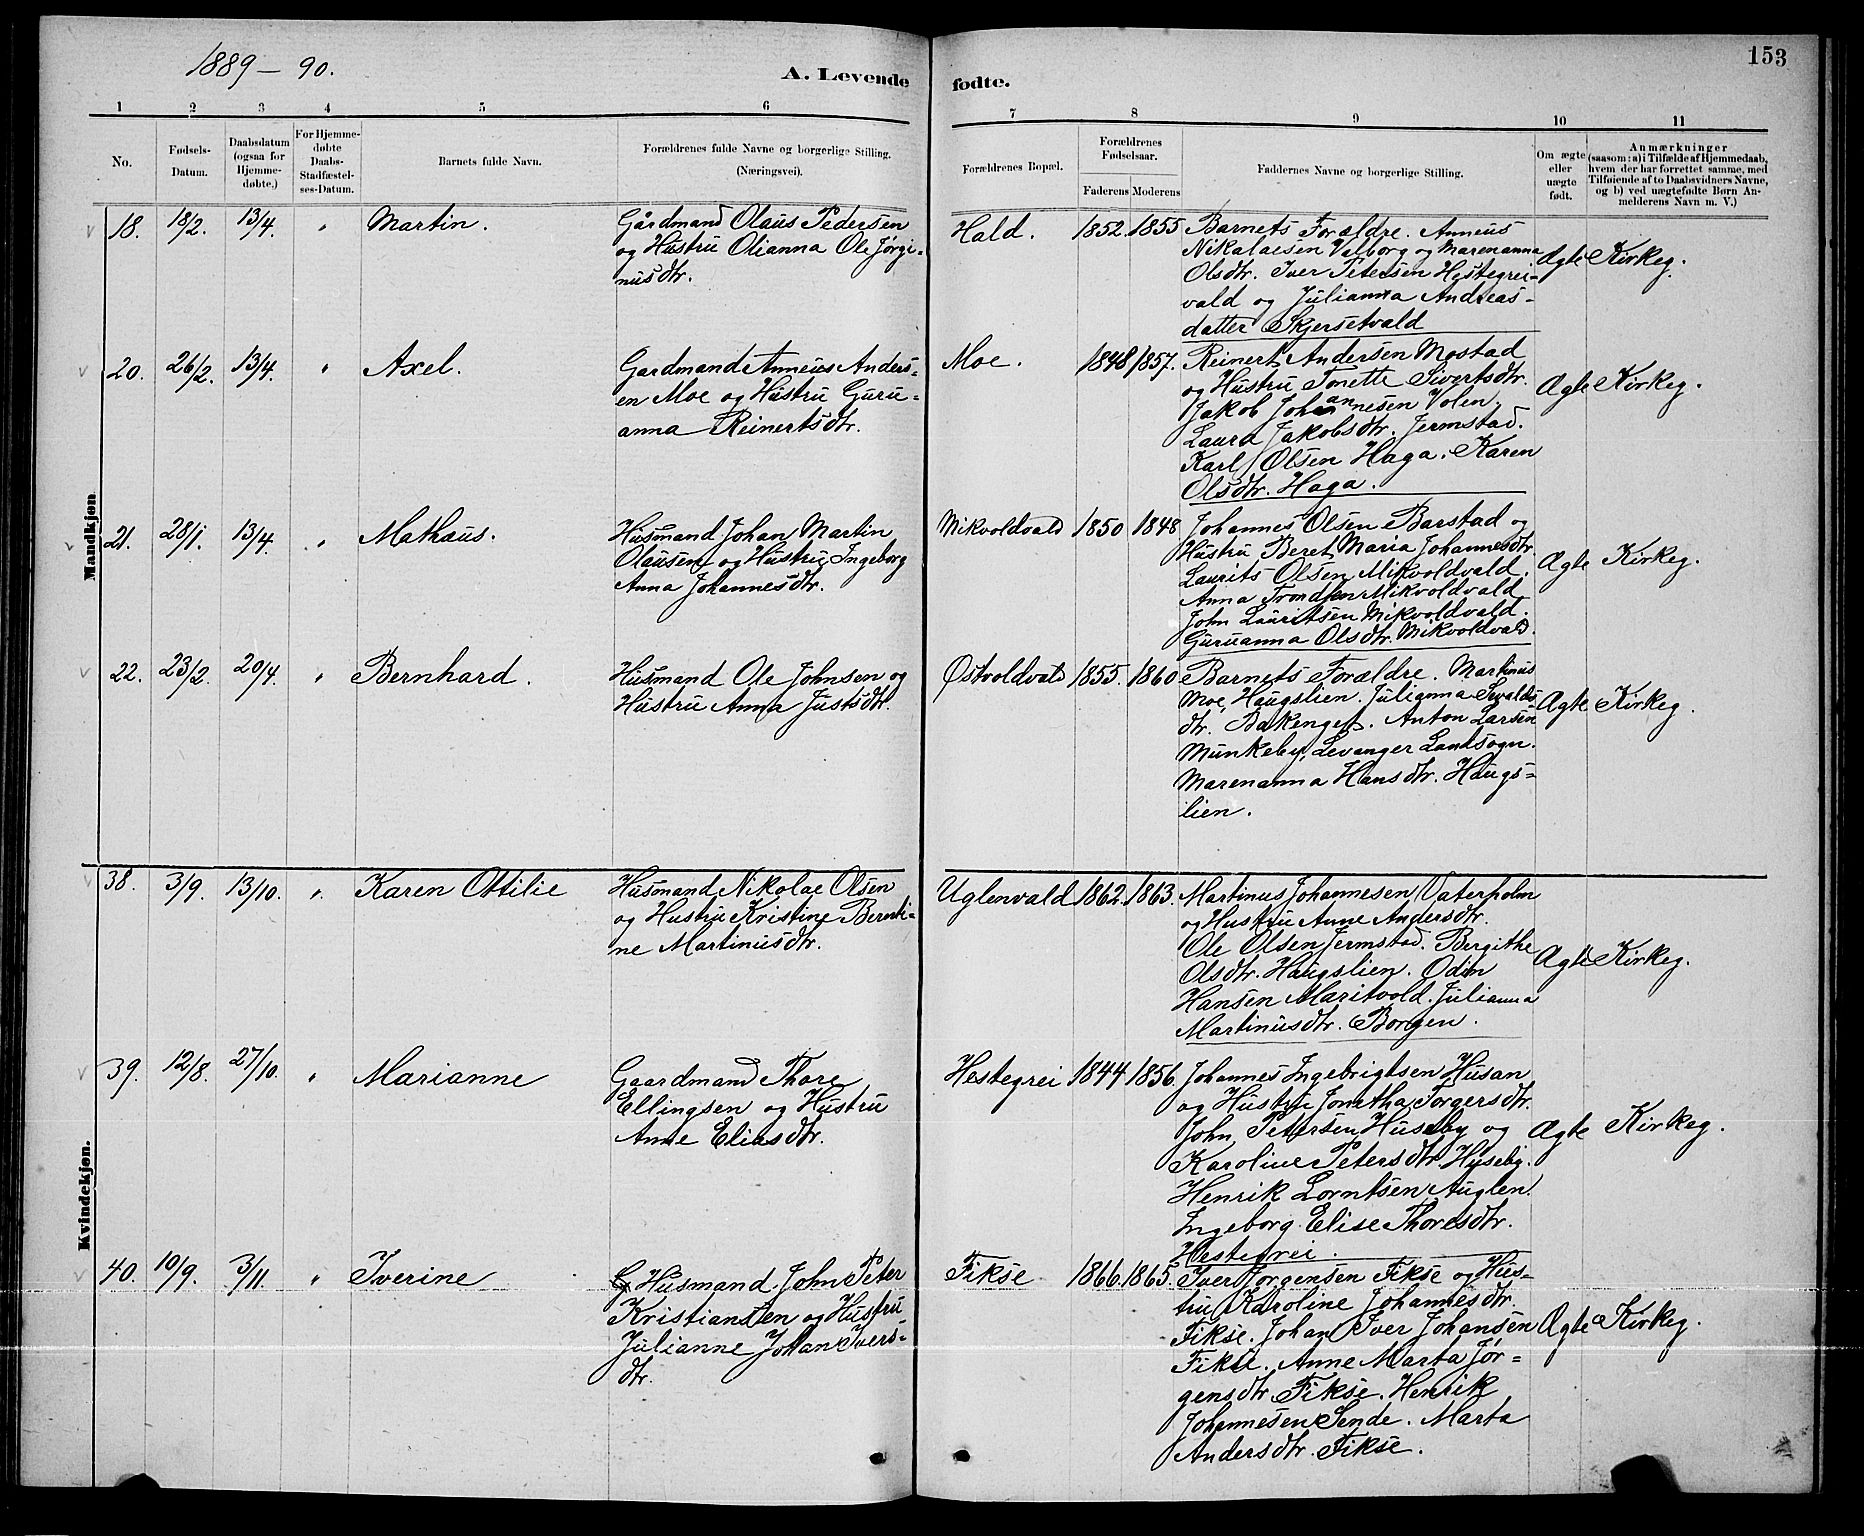 1889-90.
A. Levende
fødte.
153
1 2 3 4 5 6 7 8 9 10 11
No.
Fødsels-
Datum.
Daabsdatum
(ogsaa for
Hjemme-
døbte.)
For Hjemme-
døbte
Daabs-
Stadfæstel-
ses-Datum.
Barnets fulde Navn.
Forældrenes fulde Navne og borgerlige Stilling.
(Næringsvei).
Forældrenes Bopæl.
Forældrenes
Fødselsaar.
Faderens Moderens
Faddernes Navne og borgerlige Stilling.
Om ægte
eller
uægte
født.
Anmærkninger
(saasom: a) i Tilfælde af Hjemmedaab,
hvem der har forrettet samme, med
Tilføiende af to Daabsvidners Navne,
og b) ved uægtefødte Børn An-
melderens Navn m. V.)
Mandkjøn
18. 18/2. 13/4. " Martin.
Gårdmand Olaus Pedersen
og Hustru Olianna Ole Jørgi-
nusdtr.
Hald. 1852. 1855
Barnets Forældre. Anneus
Nikolaisen Valborg og Marenanna
Olsdtr. Iver Petersen Hestegrei-
vald og Julianna Andreas-
datter Skjersetvald
Ægte Kirkeg.
20. 26/2. 13/4. " Axel.
Gardmand Anneus Anders-
en Moe og Hustru Guru-
anna Reinertsdtr.
Moe. 1848 1857.
Reinert Andersen Mostad
og Hustru Tonette Sivertsdtr.
Jakob Johannesen Volen.
Laura Jakobsdtr. Jermstad.
Karl Olsen Haga. Karen
Olsdtr. Haga.
Ægte Kirkeg.
21. 28/1. 13/4. " Mathæus.
Husmand Johan Martin
Olausen og Hustru Ingeborg
Anna Johannesdtr.
Mikvoldvald 1850 1848
Johannes Olsen Barstad og
Hustru Beret Maria Johannesdtr.
Laurits Olsen Mikvoldvald.
Anna Trondsen Mikvoldvald
John Lauritsen Mikvoldvald.
Guruanna Olsdtr. Mikvoldvald.
Ægte Kirkeg.
22. 23/2. 20/4. " Bernhard.
Husmand Ole Johnsen og
Hustru Anna Justsdtr.
Østvoldvald 1855. 1860
Barnets Forældre. Martinus
Moe, Haugslien. Julianna Sivalds-
dtr. Bakenget. Anton Larsen
Munkeby, Levanger Landsogn.
Marenanna Hansdtr. Haugs-
lien.
Ægte Kirkeg.
Kvindekjøn.
38. 3/9. 13/10. " Karen Ottilie
Husmand Nikolae Olsen
og Hustru Kristine Bernti-
ne Martinusdtr.
Uglenvald 1862. 1863.
Martinus Johannesen Vaterholm
og Hustru Anne Andersdtr.
Ole Olsen Jermstad. Bergithe
Olsdtr. Haugslien. Odin
Hansen Maritvold. Julianna
Martinusdtr. Borgen.
Ægte Kirkeg.
39. 12/8. 27/10. " Marianne
Gaardmand Thore
Ellingsen og Hustru
Anne Eliasdtr.
Hestegrei 1844 1856.
Johannes Ingebrigtsen Husan
og Hustru Jonetha Torgersdtr.
John Petersen Huseby og
Karoline Petersdtr. Hyseby.
Henrik Lorntsen Auglen.
Ingeborg Elise Thoresdtr.
Hestegrei.
Ægte Kirkeg.
40. 10/9. 3/11. " Iverine
Husmand John Peter
Kristiansen og Hustru
Julianne Johan Ivers-
dtr.
Fikse 1866. 1865.
Iver Jørgensen Fikse og Hus-
tru Karoline Johannesdtr.
Fikse. Johan Iver Johansen
Fikse. Anne Marta Jør-
gensdtr. Fikse. Henrik
Johannesen Sende. Marta
Andersdtr. Fikse.
Ægte Kirkeg.